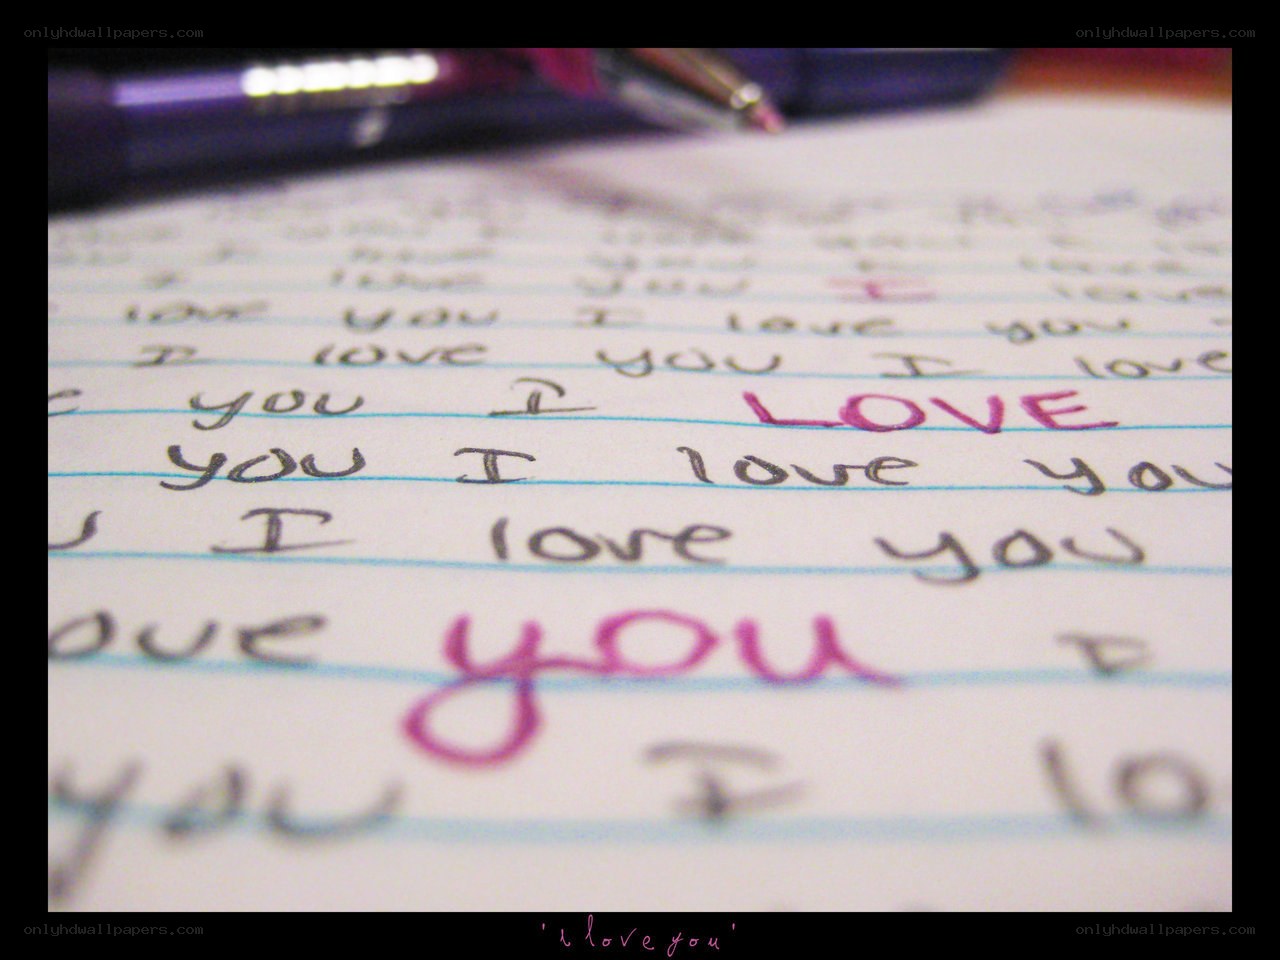 onlyhdwallpapers.com onlyhdwallpapers.com
I love you I love
love you I love you
I love you I love
you I LOVE
you I love you
I love you
ove you I
you I lo
onlyhdwallpapers.com onlyhdwallpapers.com
'i love you'